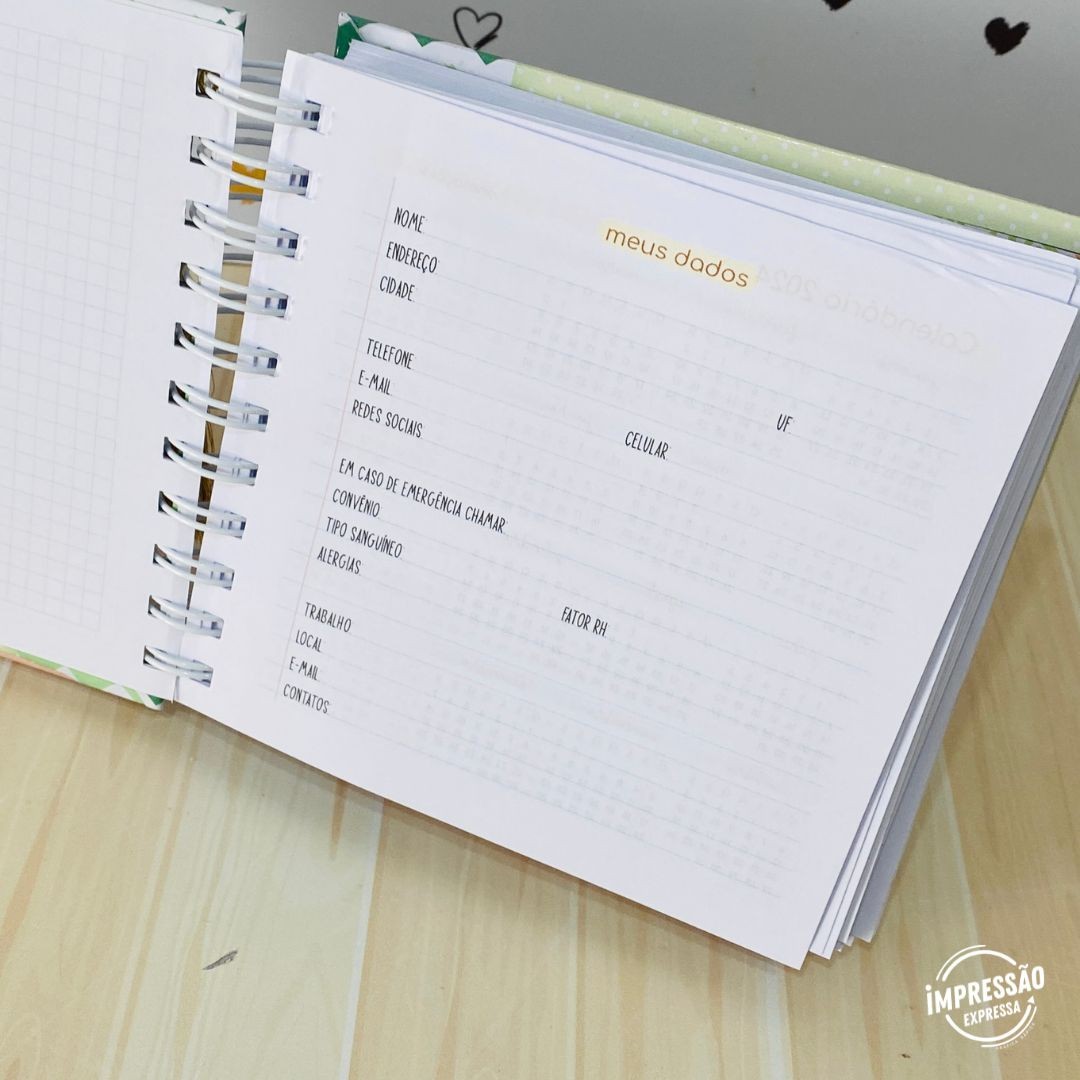 meus dados
NOME:
ENDEREÇO:
CIDADE: UF:
TELEFONE: CELULAR:
E-MAIL:
REDES SOCIAIS
EM CASO DE EMERGÊNCIA CHAMAR:
CONVÊNIO:
TIPO SANGUÍNEO: FATOR RH:
ALERGIAS:
TRABALHO
LOCAL:
E-MAIL:
CONTATOS:
Calendário 2024
IMPRESSÃO
EXPRESSA